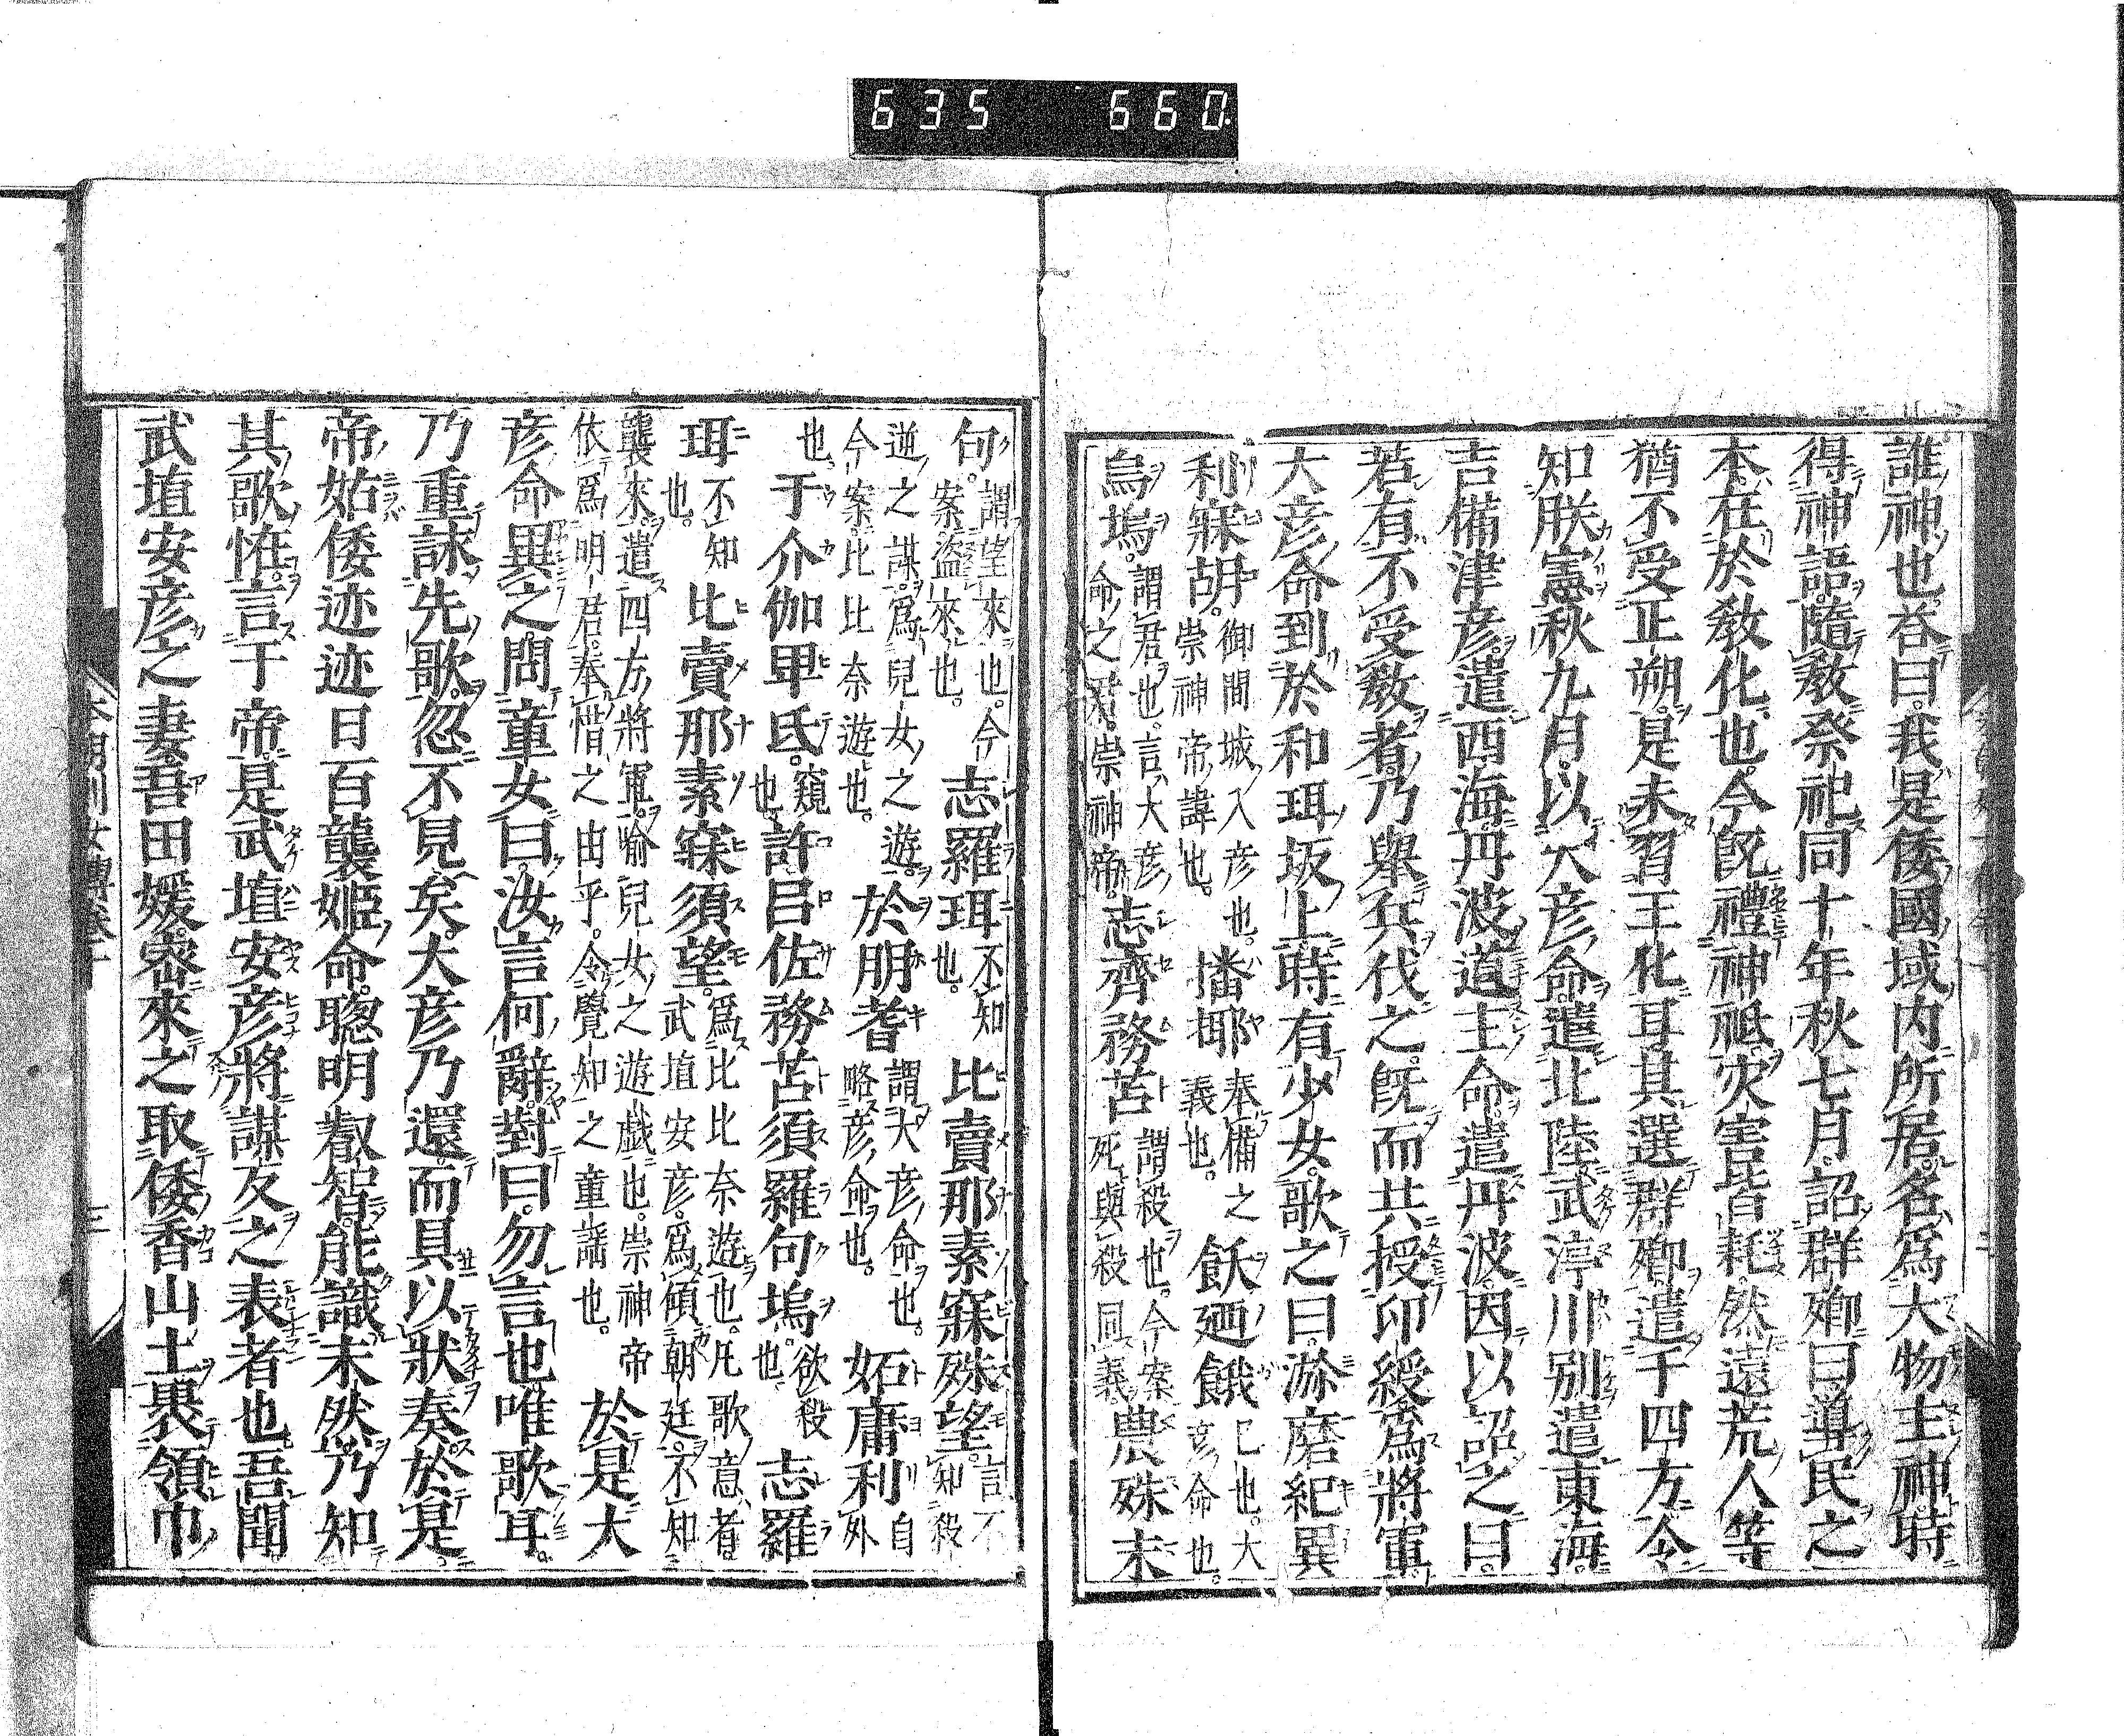 635 660
誰神也荅曰我是倭國域内所居名爲大物主神時
得神語隨敎祭祀同十年秋七月詔群卿曰導民之
本在於敎化也今旣禮神祗灾害皆耗然遠荒人等
猶不受正朔是未習王化耳其選群卿遣于四方令
知朕憲秋九月以大彦命遣北陸武渟川別遣東海
吉備津彦遣西海丹波道主命遣丹波因以詔之曰
若有不受敎者乃擧兵伐之旣而共授印綬爲將軍
大彦命到於和珥坂上時有少女歌之曰瀰磨紀異
利寐胡御間城入彦也崇神帝諱也播揶奉備之義也飫廼餓己也大彦命也
烏塢謂君也言大彦命之君崇神帝志齊務苫謂殺也今案死與殺同義農殊末
句謂望來也今案盜來也志羅珥不知也比賣那素寐殊望言不知殺
逆之謀爲兒女之遊今案比比奈遊也於朋耆謂大彦命也略彦命也妬庸利自外
也于介伽卑氐窺也許呂佐務苫須羅句塢欲殺也志羅
珥不知也比賣那素寐須望爲比比奈遊也凡歌意者武埴安彦爲傾朝廷不知
襲來遣四方將軍喩兒女之遊戯也崇神帝依爲明君奉惜之由乎令覺知之童謡也於是大
彦命異之問童女曰汝言何辭對曰勿言也唯歌耳
乃重詠先歌忽不見矣大彦乃還而具以狀奏於是
帝姑倭迹迹日百襲姬命聰明叡智能識未然乃知
其歌恠言于帝是武埴安彦將謀反之表者也吾聞
武埴安彦之妻吾田媛密來之取倭香山土裹領巾